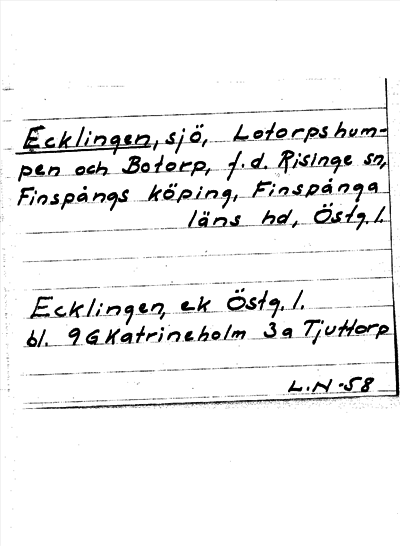 Ecklingen, sjö, Lotorpshum-
pen och Botorp, f.d. Risinge sn,
Finspångs köping, Finspånga
läns hd, Östg. l.
Ecklingen, ek Östg. l.
bl. 9G Katrineholm 3a Tjuttorp
L.N -58